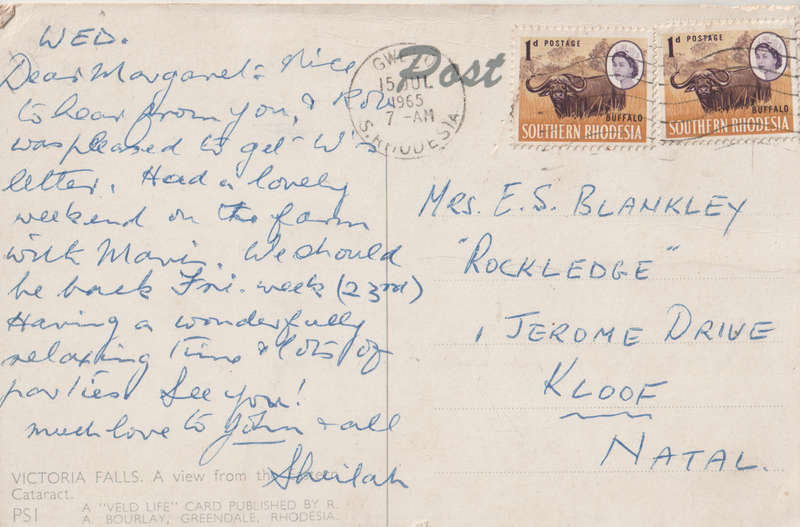 WED.
Dear Margaret - Nice
to hear from you, & Rob
was pleased to get W's
letter. Had a lovely
weekend on the farm
with Mavis. We should
be back Fri. week (23rd)
Having a wonderfully
relaxing time & lots of
parties See you!
much love to John & all
Sheilah
VICTORIA FALLS. A view from the
Cataract.
PS1
A "VELD LIFE" CARD PUBLISHED BY R.
A. BOURLAY, GREENDALE, RHODESIA.
Post
15 JUL
1965
7 -AM
S. RHODESIA
1d POSTAGE
BUFFALO
SOUTHERN RHODESIA
1d POSTAGE
BUFFALO
SOUTHERN RHODESIA
MRS. E.S. BLANKLEY
"ROCKLEDGE"
1 JEROME DRIVE
KLOOF
NATAL.